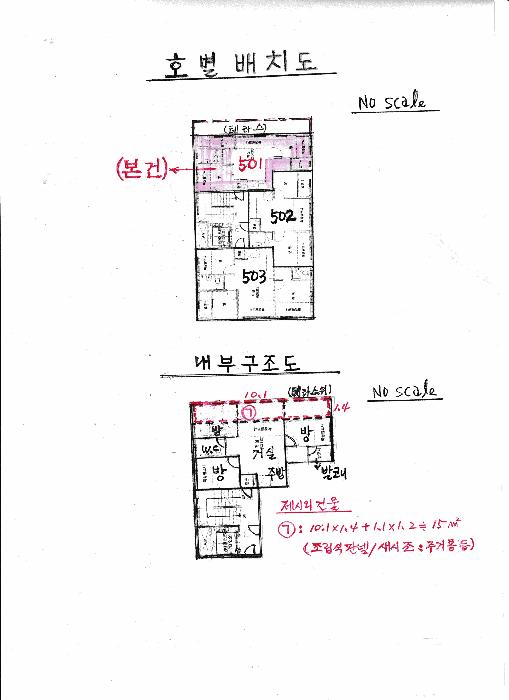 호별배치도
No scale
(테라스)
(본건)
501
502
503
내부구조도
No scale
10.1
(테라스위)
㉠
1.4
방
방
W.C
거실
방
주방
발코니
제시외건물
㉠: 10.1×1.4+1.1×1.2≒15㎡
(조립식판넬/새시조:주거용등)